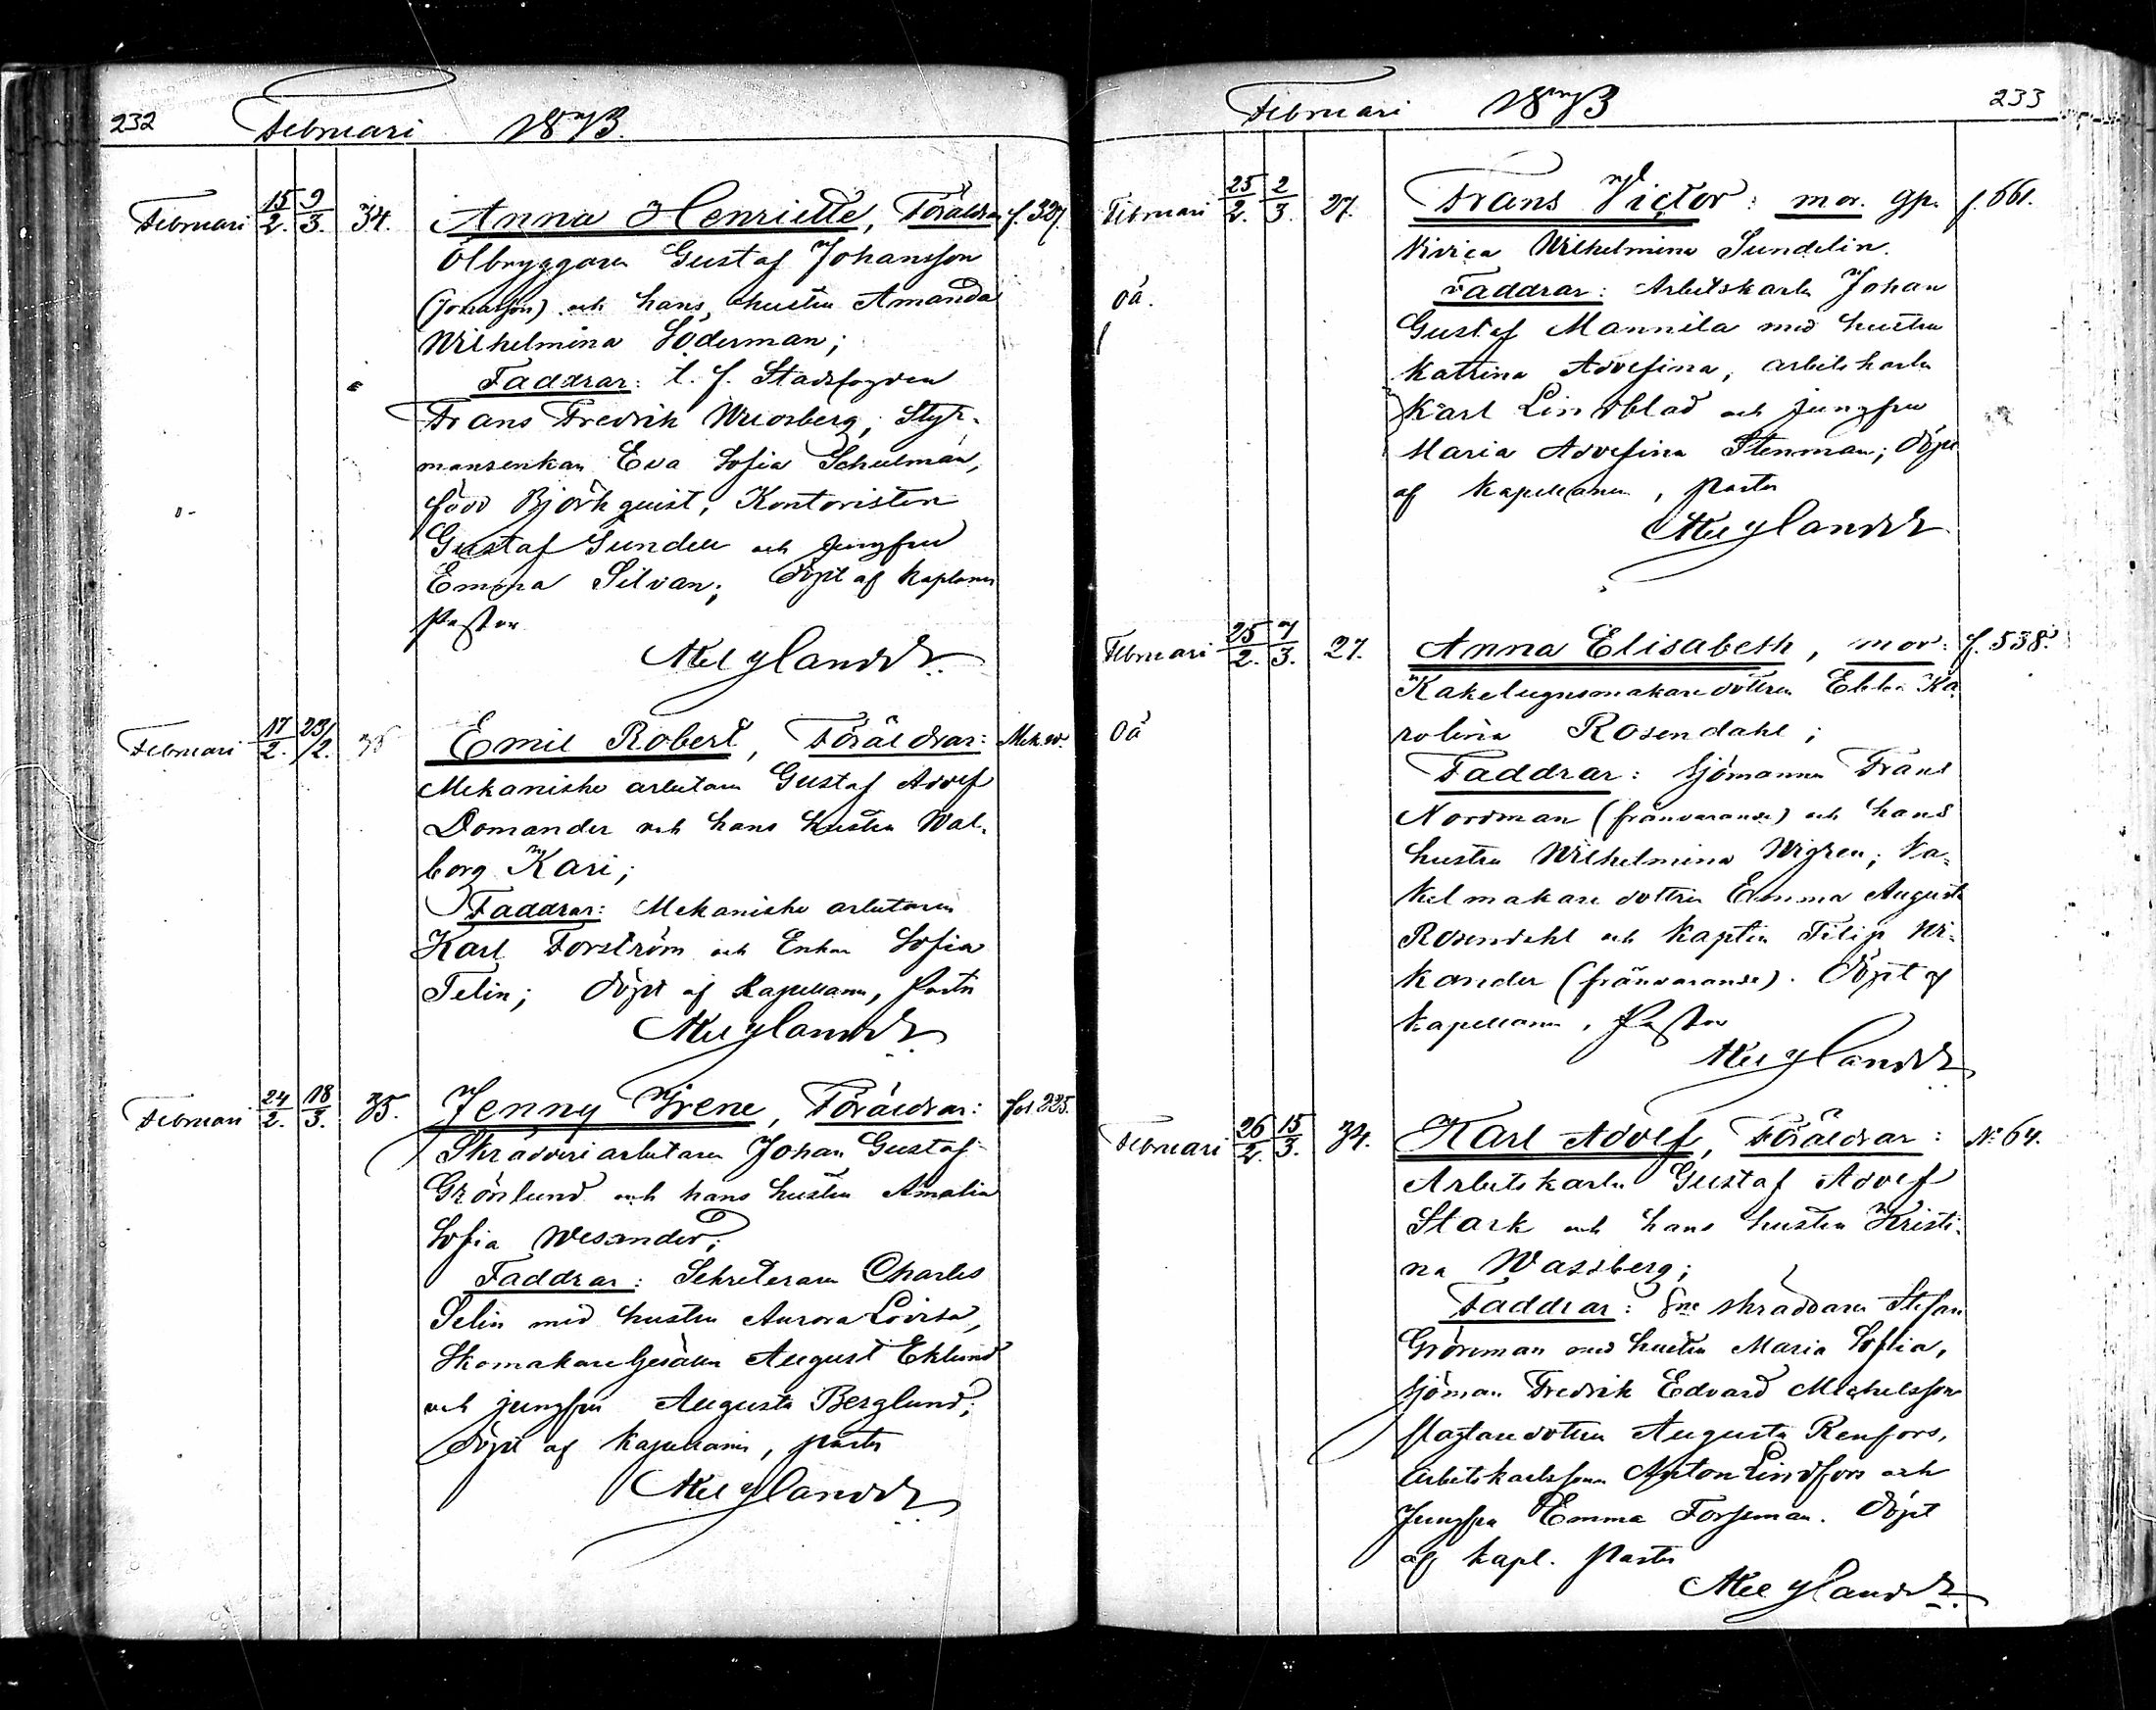 232 Februari 1873.
Februari 15/2. 9/3. 34. Anna Henriette, Föräldrar f. 321.
Ölbryggaren Gustaf Johansson
och hans hustru Amanda
Wilhelmina Söderman;
Faddrar: t. f. Stadsfogden
Frans Fredrik Widberg, Styr-
mansenkan Eva Sofia Schulman,
född Björkquist, Kontoristen
Gustaf Sundell och Jungfru
Emma Silvan; döpt af Kaplanen
Pastor
Februari 17/2. 23/2. 35 Emil Robert, Föräldrar: Mek.
Mekaniske arbetaren Gustaf Adolf
Domander och hans hustru Wal-
borg Kari;
Faddrar: Mekaniske arbetaren
Karl Forström och Enkan Sofia
Telin; döpt af Kapellanen, Pastor
Februari 24/2. 18/3. 35. Jenny Irene, Föräldrar: fol 225.
Skrädderiarbetaren Johan Gustaf
Grönlund och hans hustru Amalia
Sofia Wesander;
Faddrar: Sekreteraren Charles
Selin med hustru Aurora Lovisa,
Skomakare Gesällen August Eklund
och jungfru Augusta Berglund;
döpt af Kapellanen, pastor
Februari 1873 233
Februari 25/2. 2/3. 27. Frans Victor: mor. gp. f. 661.
Vivica Wilhelmina Sundelin.
oä. Faddrar: Arbetskarlen Johan
Gustaf Mannila med hustru
Katrina Adolfina, arbetskarlen
Karl Lindblad och jungfru
Maria Adolfina Stenman; döpt
af Kapellanen, Pastor
Februari 25/2. 7/3. 27. Anna Elisabeth, mor: f. 538.
Kakelugnsmakaredottren Ebba Ka-
oä rolina Rosendahl;
Faddrar: Sjömannen Frans
Nordman (frånvarande) och hans
hustru Wilhelmina Wigren; Ka-
kelmakaredottren Emma Augusta
Rosendahl och Kaptén Filip Wi-
kander (frånvarande). Döpt af
Kapellanen, Pastor
Februari 26/2. 15/3. 34. Karl Adolf, Föräldrar: No 64.
Arbetskarlen Gustaf Adolf
Stark och hans hustru Kristi-
na Wassberg;
Faddrar: skräddaren Stefan
Grönman med hustru Maria Sofia,
Sjöman Fredrik Edvard Michelsson
dottren Augusta Renfors,
Arbetskarlssonen Anton Lindfors och
Jungfru Emma Forsman. Döpt
af Kapl. Pastor